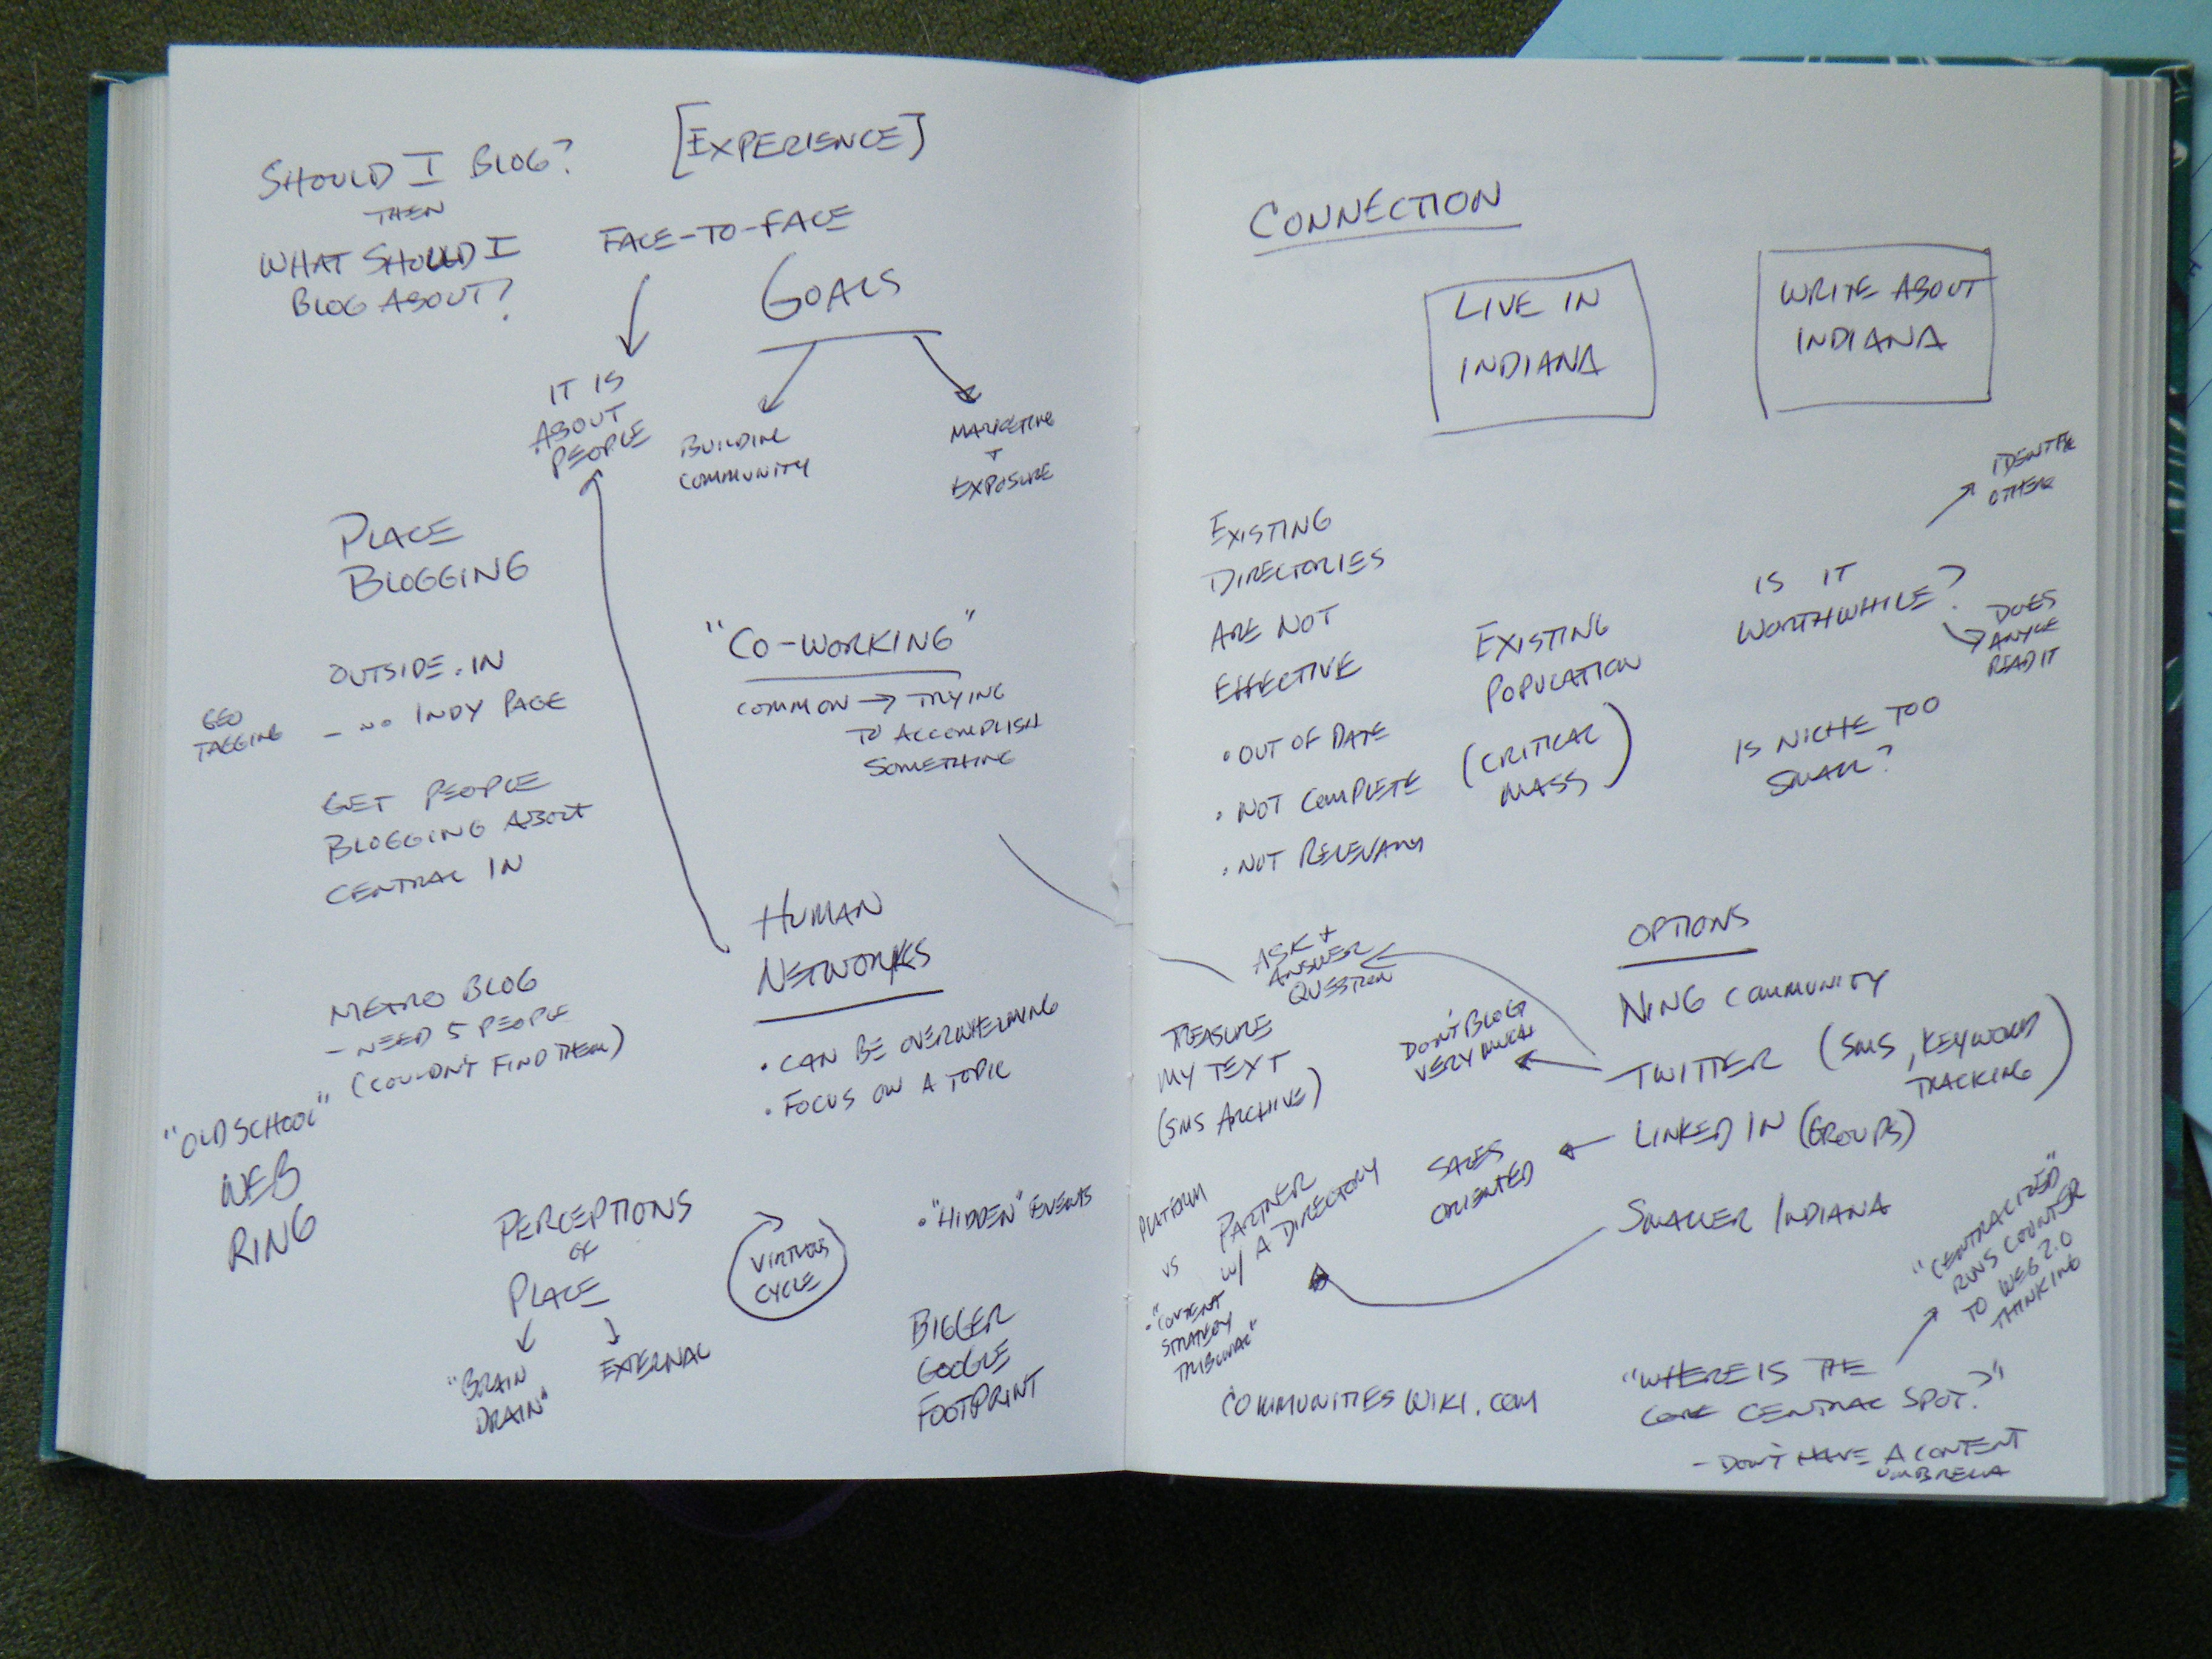 SHOULD I BLOG?
THEN
WHAT SHOULD I
BLOG ABOUT?
[EXPERIENCE]
FACE-TO-FACE
GOALS
IT IS
ABOUT
PEOPLE
BUILDING
COMMUNITY
MARKETING
+
EXPOSURE
PLACE
BLOGGING
OUTSIDE.IN
- NO INDY PAGE
GEO
TAGGING
GET PEOPLE
BLOGGING ABOUT
CENTRAL IN
"CO-WORKING"
COMMON → TRYING
TO ACCOMPLISH
SOMETHING
METRO BLOG
- NEED 5 PEOPLE
(COULDN'T FIND THEM)
"OLD SCHOOL"
WEB
RING
HUMAN
NETWORKS
• CAN BE OVERWHELMING
• FOCUS ON A TOPIC
PERCEPTIONS
OF
PLACE
"BRAIN
DRAIN"
EXTERNAL
VIRTUOUS
CYCLE
• "HIDDEN" EVENTS
BIGGER
GOOGLE
FOOTPRINT
CONNECTION
LIVE IN
INDIANA
WRITE ABOUT
INDIANA
EXISTING
DIRECTORIES
ARE NOT
EFFECTIVE
• OUT OF DATE
• NOT COMPLETE
• NOT RELEVANT
EXISTING
POPULATION
(CRITICAL
MASS)
IDENTIFY
OTHER
IS IT
WORTHWHILE?
DOES
ANYONE
READ IT
IS NICHE TOO
SMALL?
OPTIONS
NING COMMUNITY
TWITTER (SMS, KEYWORD
TRACKING)
LINKED IN (GROUPS)
SMALLER INDIANA
ASK +
ANSWER
QUESTION
DON'T BLOG
VERY MUCH
TREASURE
MY TEXT
(SMS ARCHIVE)
SALES
ORIENTED
PARTNER
W/ A DIRECTORY
PLATFORM
VS
• "CONTENT
STRATEGY
COMMUNITIESWIKI.COM
"CENTRALIZED"
RUNS COUNTER
TO WEB 2.0
THINKING
"WHERE IS THE
CENTRAL SPOT?"
- DON'T HAVE A CONTENT
UMBRELLA